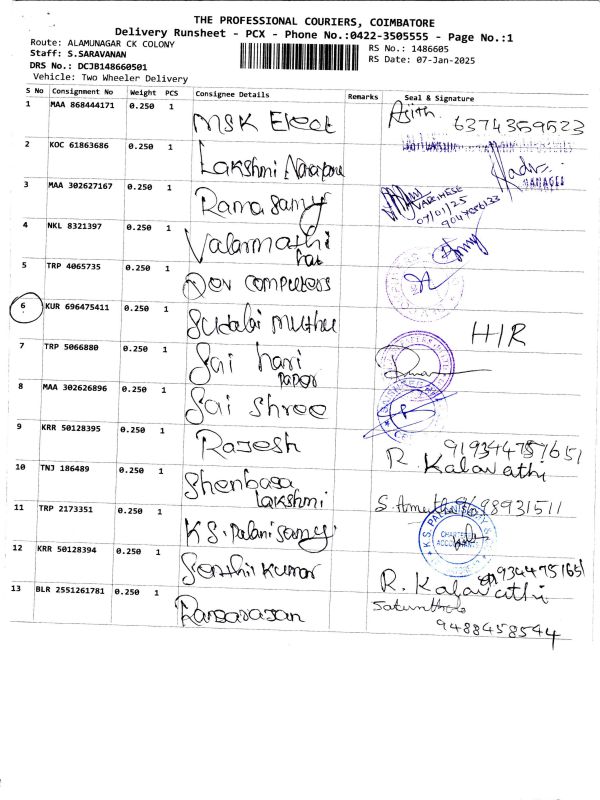 THE PROFESSIONAL COURIERS, COIMBATORE
Delivery Runsheet - PCX - Phone No.:0422-3505555 - Page No.:1
Route: ALAMUNAGAR CK COLONY
Staff: S.SARAVANAN
DRS No.: DCJB148660501
Vehicle: Two Wheeler Delivery
RS No.: 1486605
RS Date: 07-Jan-2025
S No Consignment No Weight PCS Consignee Details Remarks Seal & Signature
1 MAA 868444171 0.250 1 MSK Elect Asith 6374359523
2 KOC 61863686 0.250 1 Lakshmi
MANAGER
3 MAA 302627167 0.250 1 Ramasamy
07/01/25
4 NKL 8321397 0.250 1 Valarmathi
5 TRP 4065735 0.250 1 Dev computers
6 KUR 696475411 0.250 1 Sudalai muthu H/R
7 TRP 5066880 0.250 1 Sai hari
paper
8 MAA 302626896 0.250 1 Sai Shree
9 KRR 50128395 0.250 1 Rajesh R. Kalavathi
10 TNJ 186489 0.250 1 Shenbaga
lakshmi
11 TRP 2173351 0.250 1 K.S. Palanisamy
CHARTERED
ACCOUNTANT
12 KRR 50128394 0.250 1 Senthil kumar R. Kalavathi
13 BLR 2551261781 0.250 1
9488458544